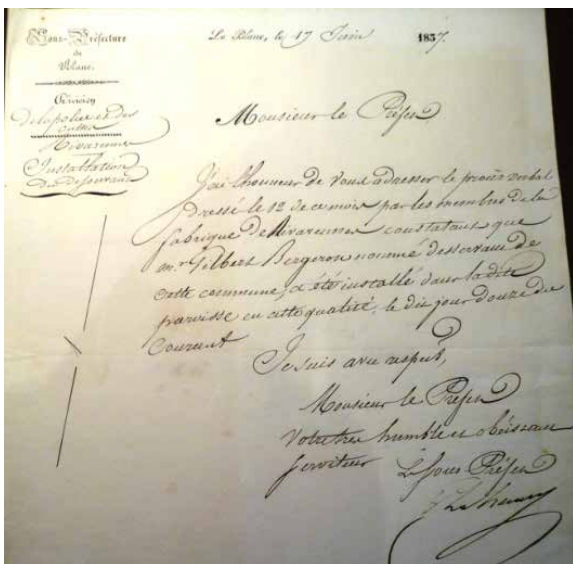 Sous-Préfecture
du
Blanc.
Division
de la police et des
cultes
Rivarennes
Installation
du desservant
Le Blanc, le 17 Juin 1837.
Monsieur le Préfet
J'ai l'honneur de vous adresser le procès verbal
dressé le 12 de ce mois par les membres de la
fabrique de Rivarennes constatant que
mr. Gilbert Bergeron nommé desservant de
cette commune, a été installé dans la dite
paroisse en cette qualité, le dix jour douze du
Courant
Je suis avec respect,
Monsieur le Préfet
Votre très humble et obéissant
serviteur
Le Sous Préfet